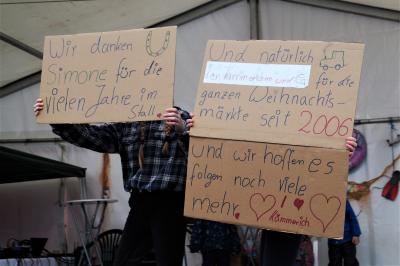 Wir danken
Simone für die
vielen Jahre im
Stall
Und natürlich
für die
ganzen Weihnachts-
märkte seit 2006
und wir hoffen es
folgen noch viele
mehr !
Kämmerich